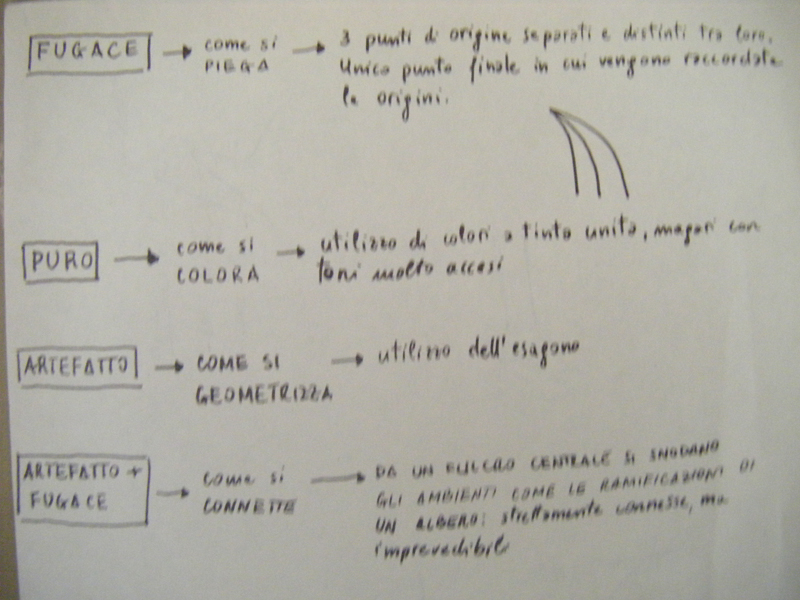 FUGACE → come si → 3 punti di origine separati e distinti tra loro.
PIEGA Unico punto finale in cui vengono raccordate
le origini.
PURO → come si → utilizzo di colori a tinta unita, magari con
COLORA toni molto accesi
ARTEFATTO → COME SI → utilizzo dell'esagono
GEOMETRIZZA
ARTEFATTO + → come si → DA UN FULCRO CENTRALE SI SNODANO
FUGACE CONNETTE GLI AMBIENTI COME LE RAMIFICAZIONI DI
UN ALBERO: strettamente connesse, ma
imprevedibili